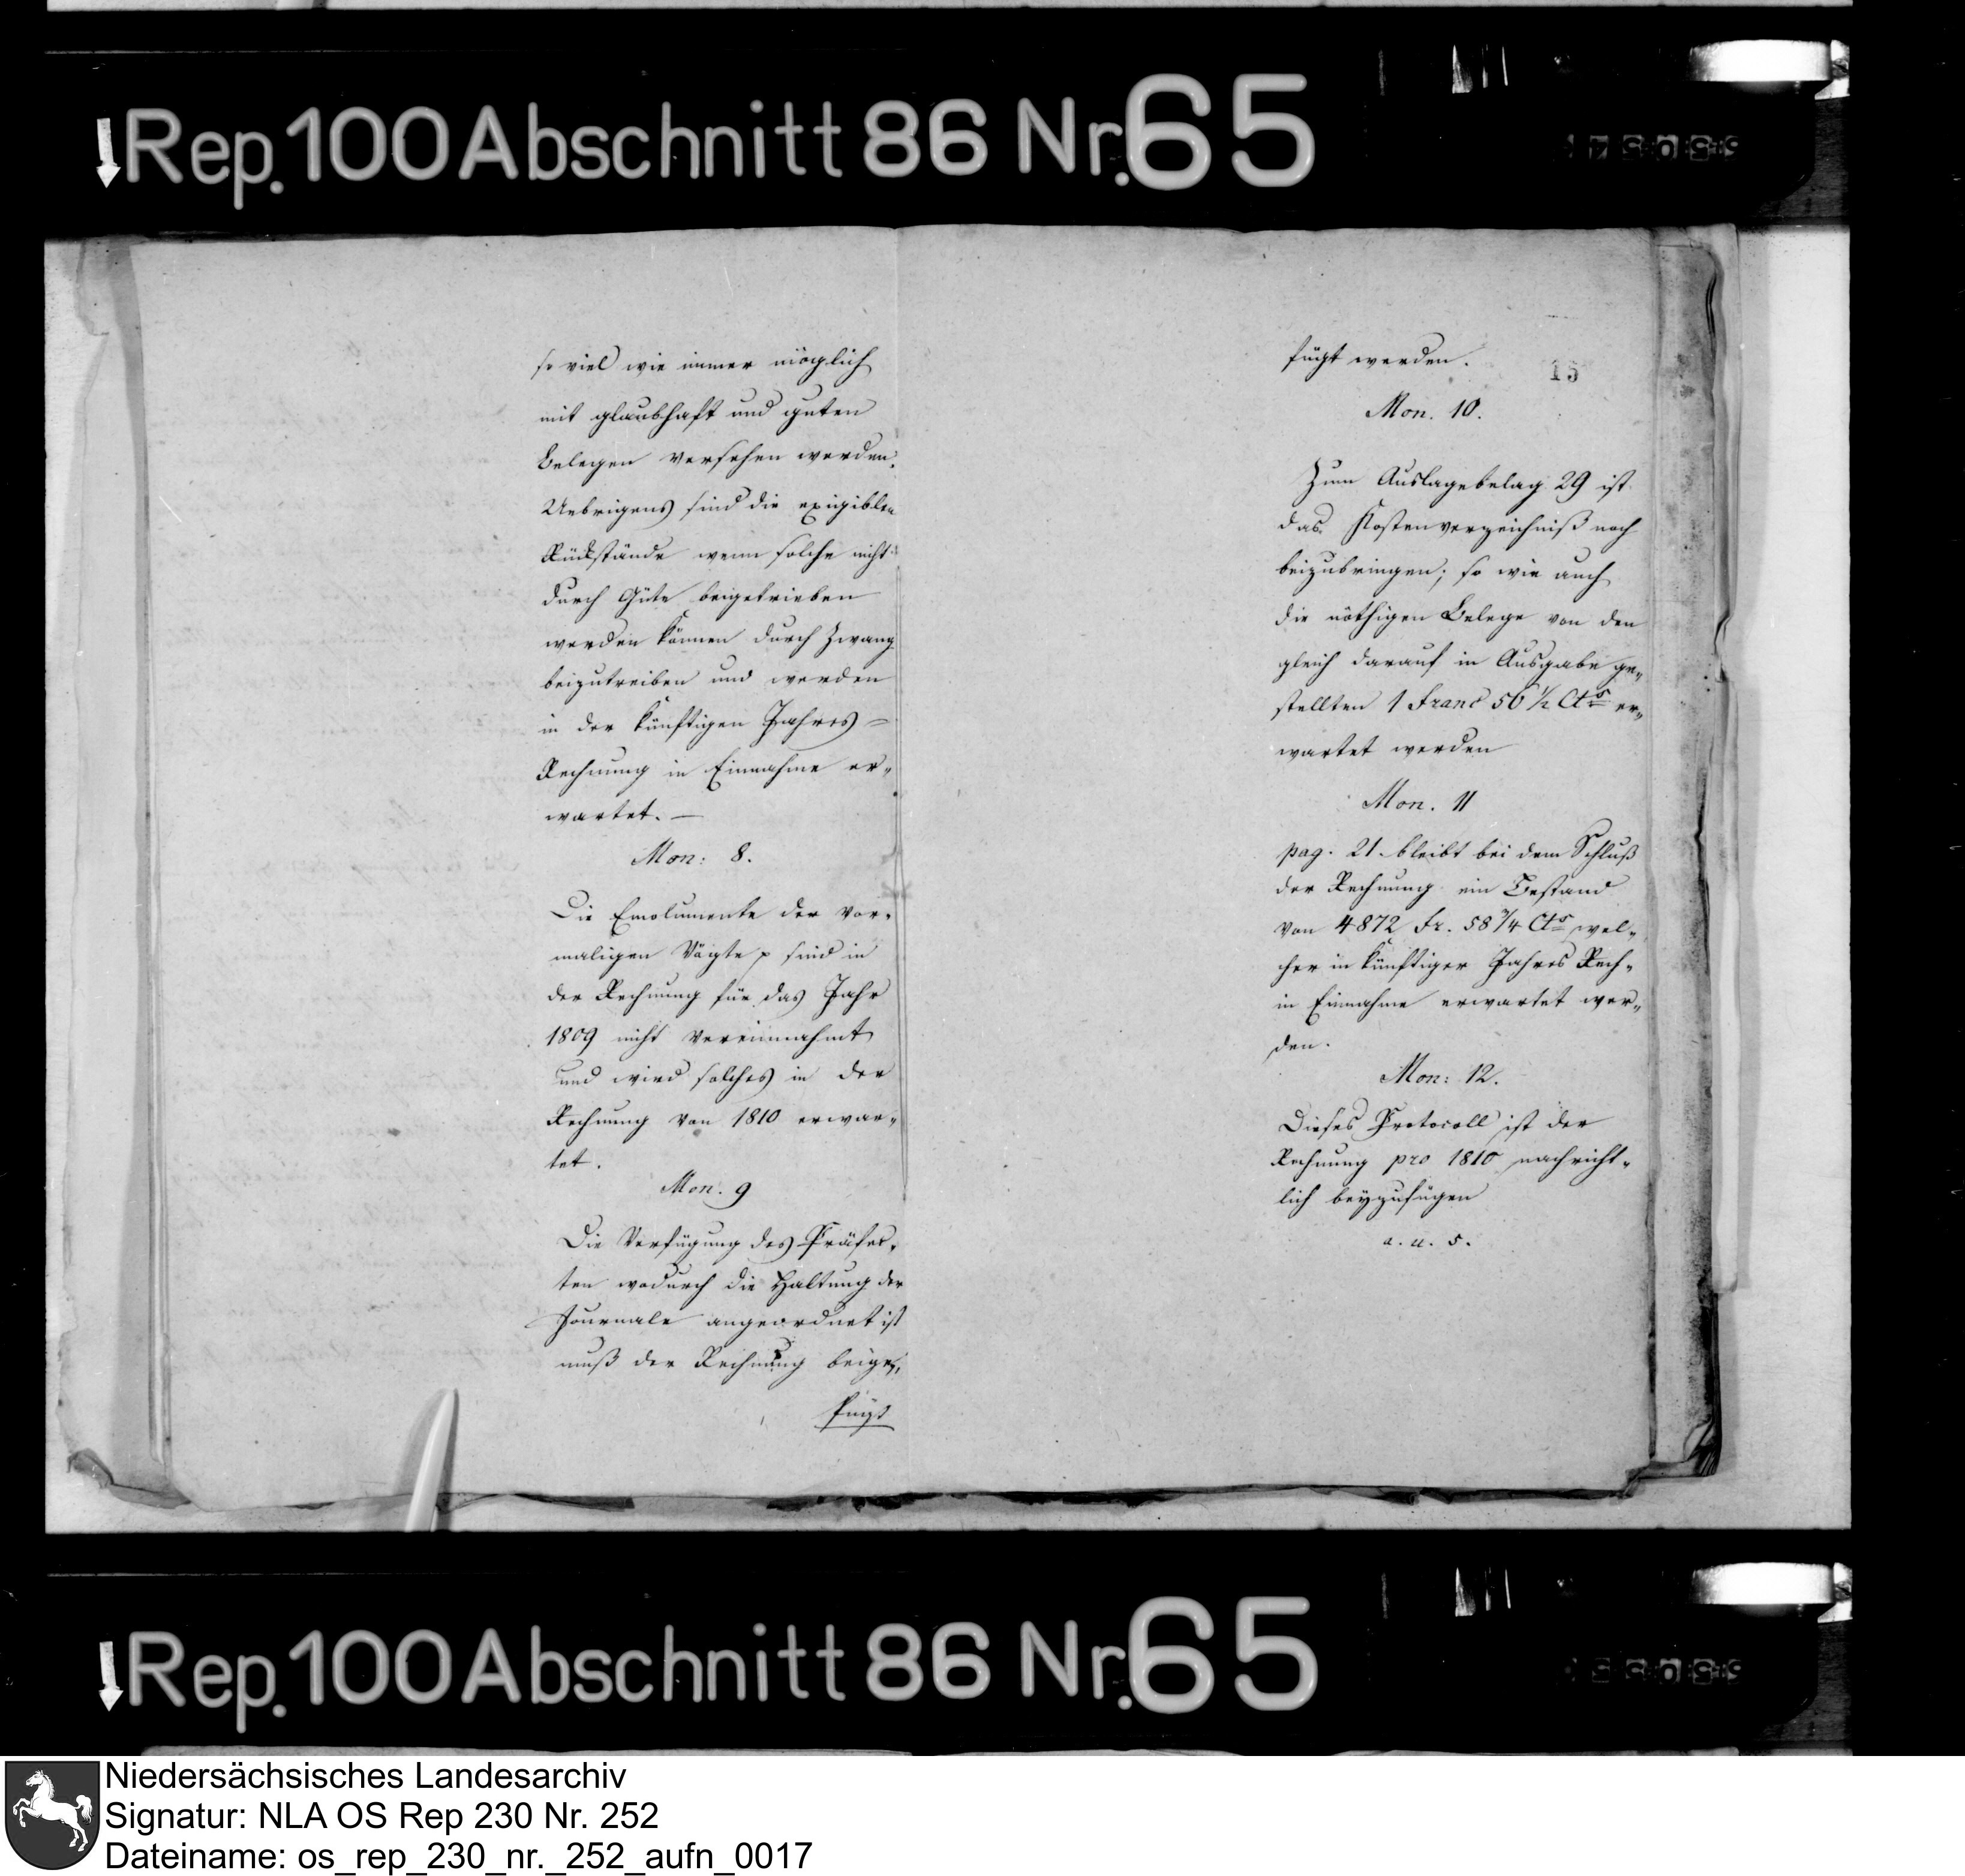 Rep. 100 Abschnitt 86 Nr. 65
so viel wie immer möglich
mit glaubhaft und guten
Belegen versehen werden.
Uebrigens sind die exigiblen
Rückstände wenn solche nicht
durch Güte beigetrieben
werden können durch Zwang
beizutreiben und werden
in der künftigen Jahres-
Rechnung in Einnahme er-
wartet. —
Mon: 8.
Die Emolumente der vor-
maligen Vögte p sind in
der Rechnung für das Jahr
1809 nicht vereinnahmt
und wird solches in der
Rechnung von 1810 erwar-
tet.
Mon. 9
Die Verfügung des Präfec-
ten wodurch die Haltung der
Journale angeordnet ist
muß der Rechnung beige-
fügt
fügt werden.
15
Mon. 10.
Zum Auslagebelag 29 ist
das Kostenverzeichniß noch
beizubringen; so wie auch
die nöthigen Belege von den
gleich darauf in Ausgabe ge-
stellten 1 Franc 56 1/2 Cts er-
wartet werden
Mon. 11
pag. 21. bleibt bei dem Schluß
der Rechnung ein Bestand
von 4872 Fr. 58 3/4 Cts wel-
cher in künftiger Jahres Rech-
in Einnahme erwartet wer-
den.
Mon: 12.
Dieses Protocoll ist der
Rechnung pro 1810 nachricht-
lich beyzufügen
a. u. s.
Rep. 100 Abschnitt 86 Nr. 65
Niedersächsisches Landesarchiv
Signatur: NLA OS Rep 230 Nr. 252
Dateiname: os_rep_230_nr._252_aufn_0017